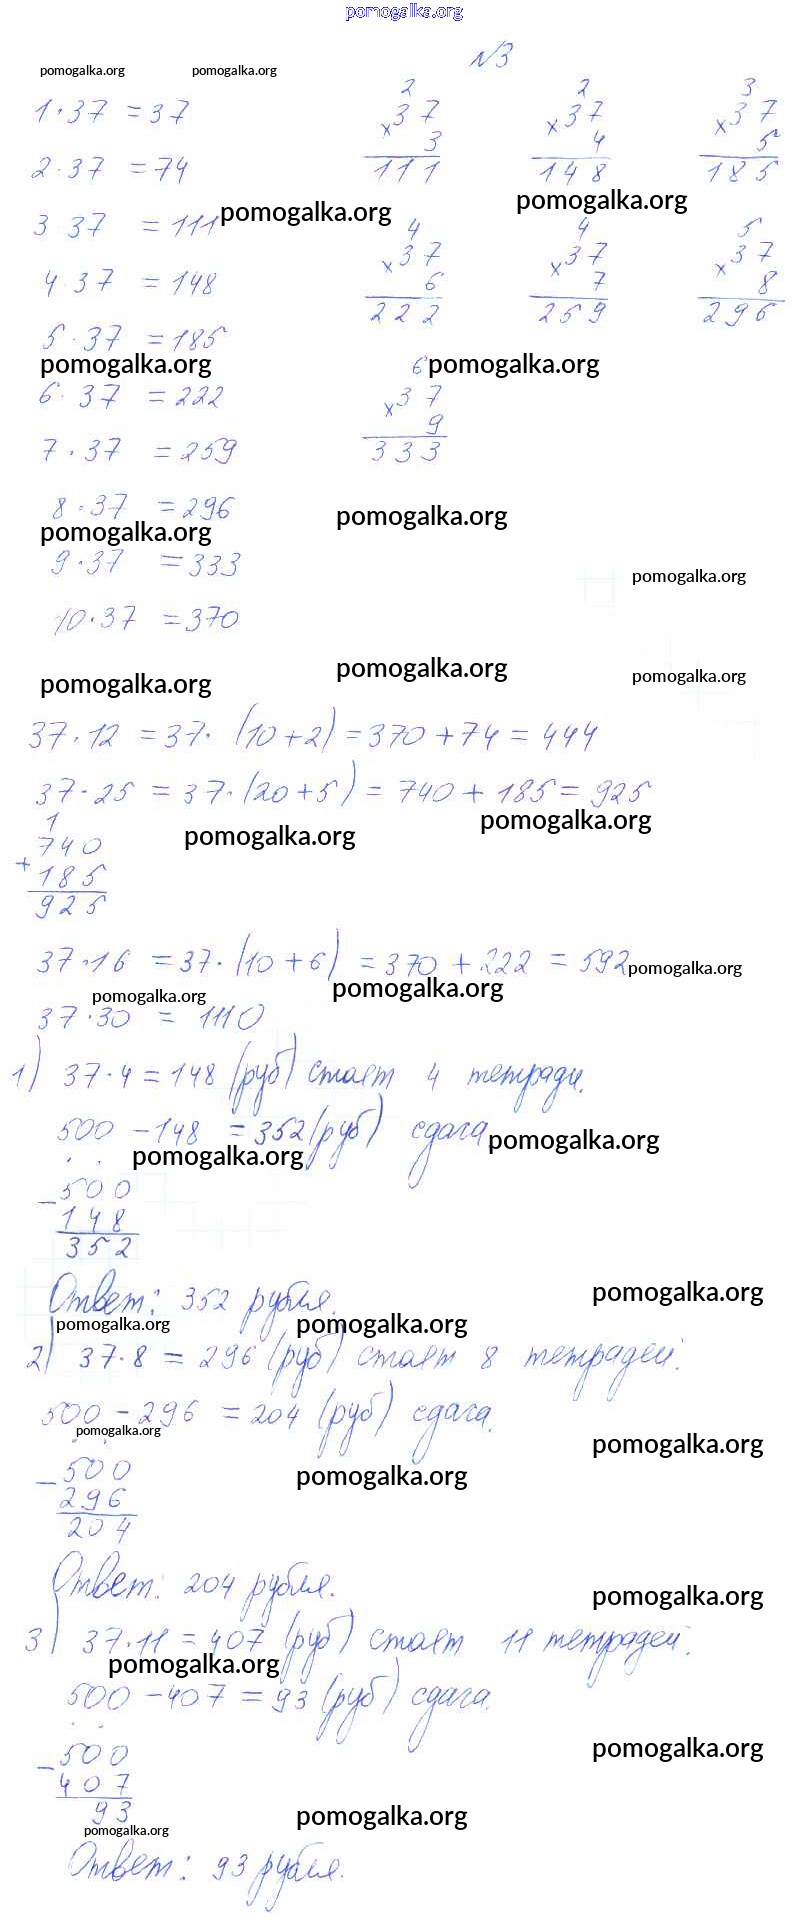 pomogalka.org
№3
pomogalka.org pomogalka.org
1·37 = 37
2·37 = 74
3·37 = 111
4·37 = 148
5·37 = 185
6·37 = 222
7·37 = 259
8·37 = 296
9·37 = 333
10·37 = 370
2
×37
3
111
2
×37
4
148
3
×37
5
185
pomogalka.org pomogalka.org
4
×37
6
222
4
×37
7
259
5
×37
8
296
pomogalka.org pomogalka.org
6
×37
9
333
pomogalka.org
pomogalka.org
pomogalka.org
pomogalka.org
pomogalka.org
pomogalka.org
37·12 = 37·(10+2) = 370+74 = 444
37·25 = 37·(20+5) = 740+185 = 925
pomogalka.org pomogalka.org
1
+740
185
925
37·16 = 37·(10+6) = 370+222 = 592
pomogalka.org
pomogalka.org pomogalka.org
37·30 = 1110
1) 37·4 = 148 (руб) стоят 4 тетради.
500 - 148 = 352 (руб) сдача
pomogalka.org
pomogalka.org
-500
148
352
Ответ: 352 рубля.
pomogalka.org
pomogalka.org pomogalka.org
2) 37·8 = 296 (руб) стоят 8 тетрадей.
500 - 296 = 204 (руб) сдача.
pomogalka.org
pomogalka.org
-500
296
204
pomogalka.org
Ответ: 204 рубля.
pomogalka.org
3) 37·11 = 407 (руб) стоят 11 тетрадей.
pomogalka.org
500 - 407 = 93 (руб) сдача.
pomogalka.org
-500
407
93
pomogalka.org
pomogalka.org
Ответ: 93 рубля.